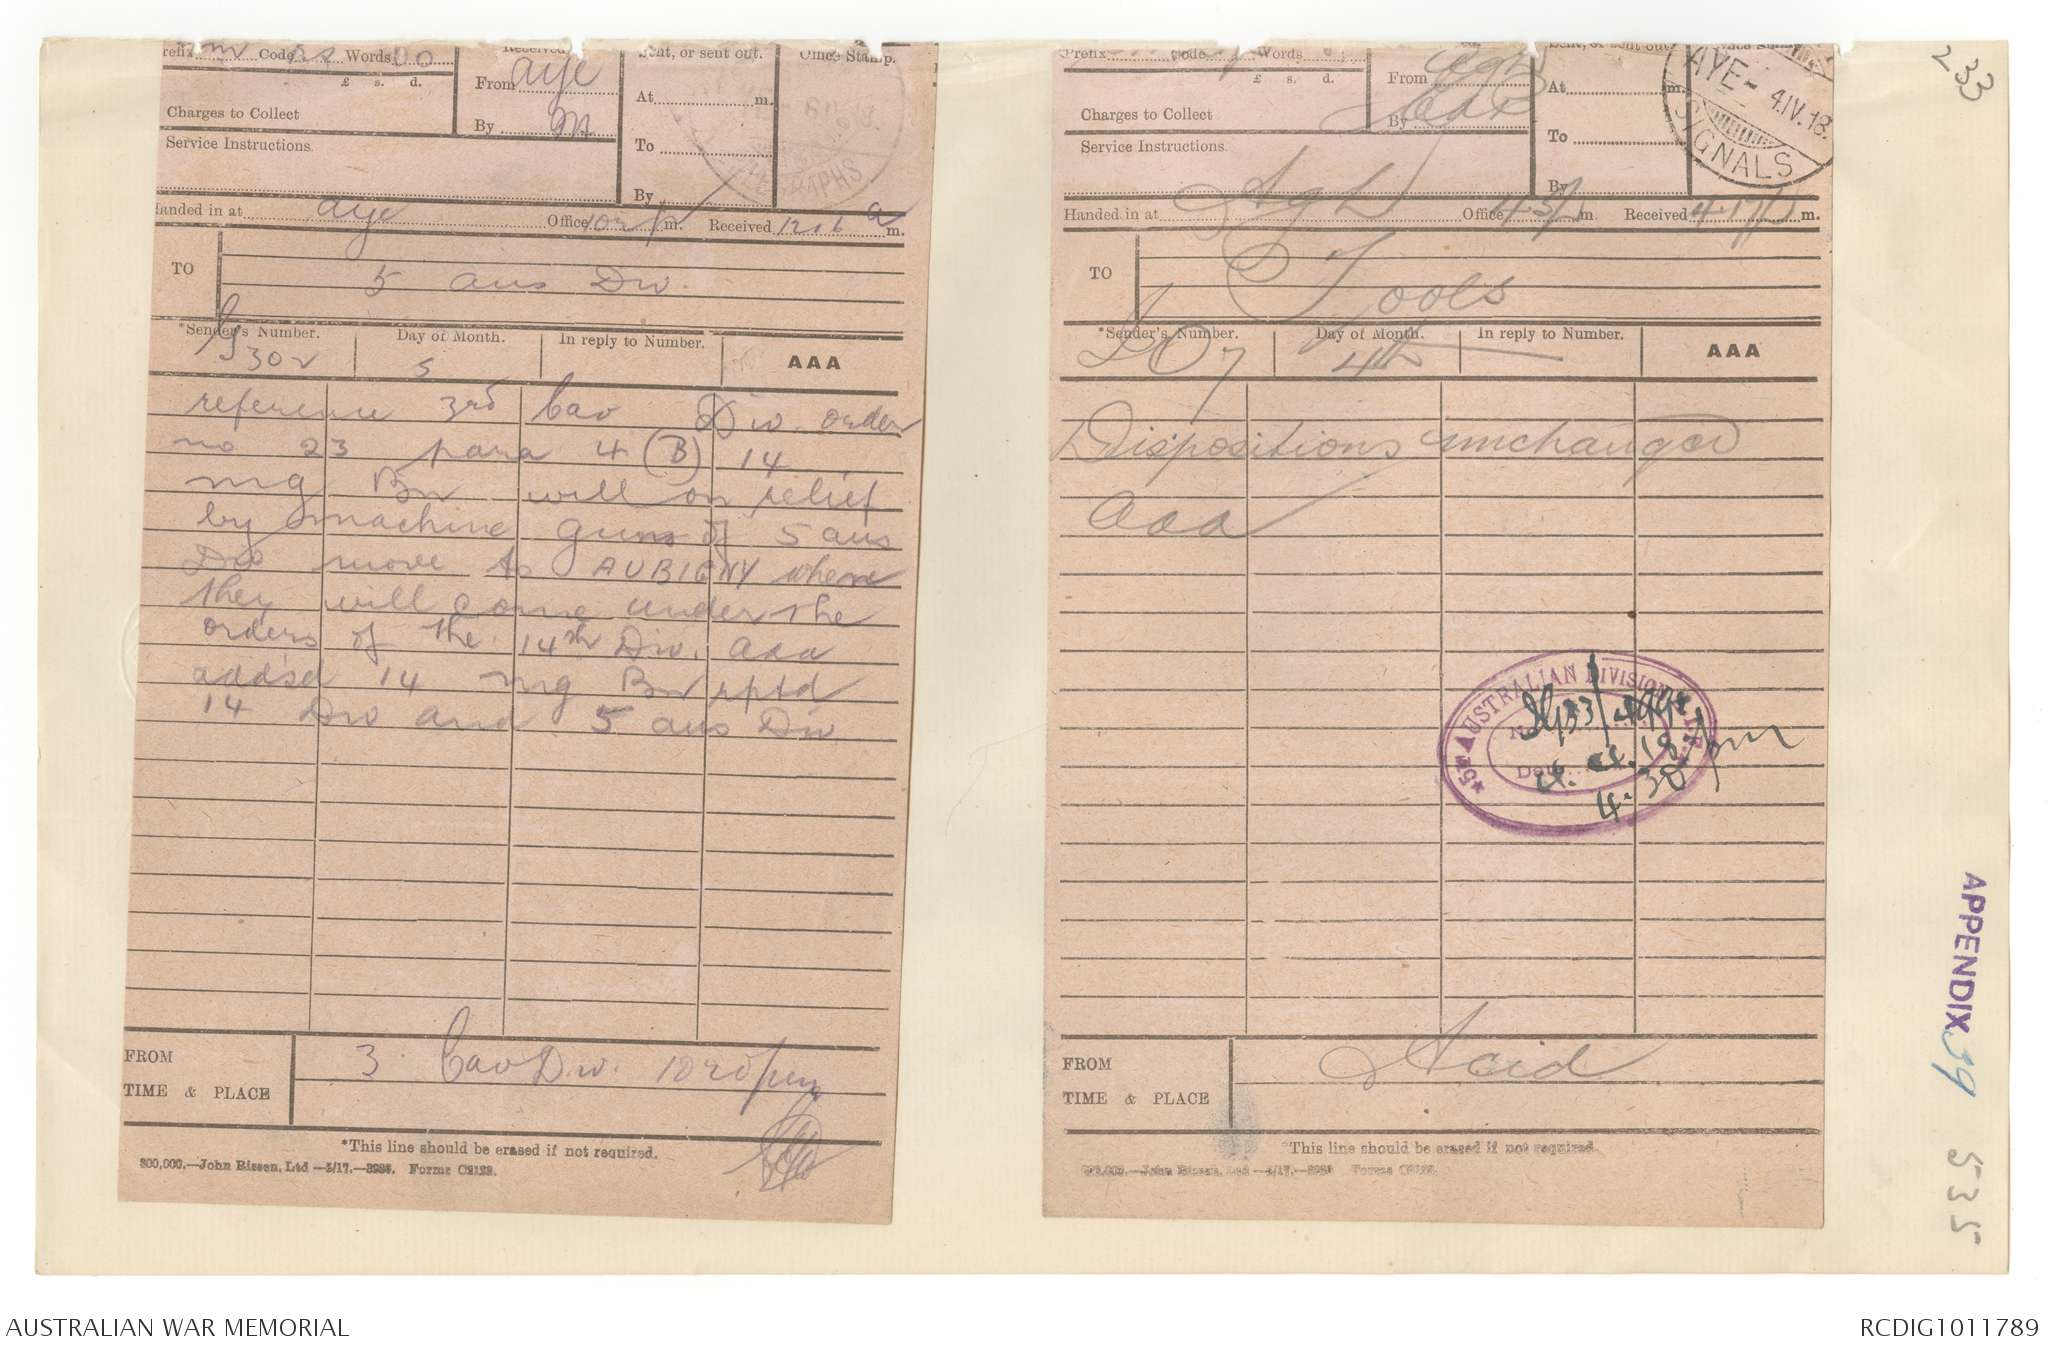 Prefix Code Words
£ s. d.
Charges to Collect
Service Instructions.
Received
From aye
By m
Sent, or sent out.
At m.
To
By
Office Stamp.
Handed in at aye Office m. Received 12.16 a m.
TO
5 aus Div.
*Sender's Number.
Day of Month.
In reply to Number.
AAA
G302
5
reference 3rd Cav Div. order
no 23 para 4 (B) 14
mg Bn will on relief
by machine guns of 5 aus
Div move to AUBIGNY where
they will come under the
orders of the 14th Div. aaa
add'sd 14 mg Bn rptd
14 Div and 5 aus Div
FROM
TIME & PLACE
3 Cav Div. 1020 pm
*This line should be erased if not required.
Prefix Code Words
£ s. d.
Charges to Collect
Service Instructions.
From
By
Sent, or sent out
At m.
To
By
AYE- 4.IV.18.
SIGNALS
Handed in at Office m. Received m.
TO
Tools
*Sender's Number.
Day of Month.
In reply to Number.
AAA
4th
Dispositions unchanged
aaa
5TH AUSTRALIAN DIVISION
No
Date 4.4.18
4.30 pm
FROM
TIME & PLACE
Acid
*This line should be erased if not required.
233
APPENDIX 39
535
AUSTRALIAN WAR MEMORIAL
RCDIG1011789